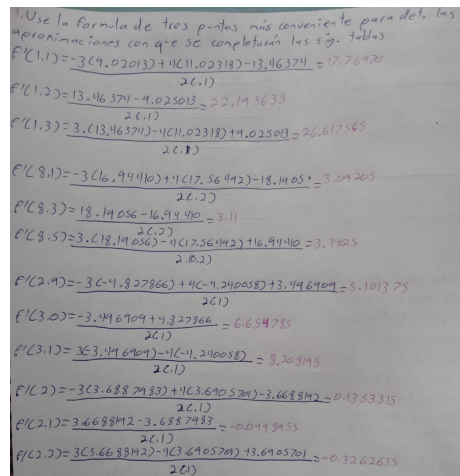 3. Use la formula de tres puntos más conveniente para det. las
aproximaciones con que se completarán las sig. tablas
f'(1.1)=-3(9.02013)+4(11.02318)-13.46374=17.76970
2(.1)
f'(1.2)=13.46374-9.025013=22.193635
2(.1)
f'(1.3)=3.(13.46374)-4(11.02318)+9.025013=26.617565
2(.1)
f'(8.1)=-3(16.94410)+4(17.56492)-18.1905=3.09205
2(.2)
f'(8.3)=18.19056-16.94410=3.11
2(.2)
f'(8.5)=3.(18.19056)-4(17.56492)+16.94410=3.1425
2(.2)
f'(2.9)=-3(-4.827866)+4(-4.240058)+3.496909=5.101375
2(.1)
f'(3.0)=-3.496909+4.827866=6.654785
2(.1)
f'(3.1)=3(-3.496909)-4(-4.240058)=8.208195
2(.1)
f'(2)=-3(3.6887983)+4(3.6905701)-3.6688192=0.1353315
2(.1)
f'(2.1)=3.6688192-3.6887983=-0.0998955
2(.1)
f'(2.2)=3(3.6688192)-4(3.6905701)+3.6905701=-0.3262635
2(.1)